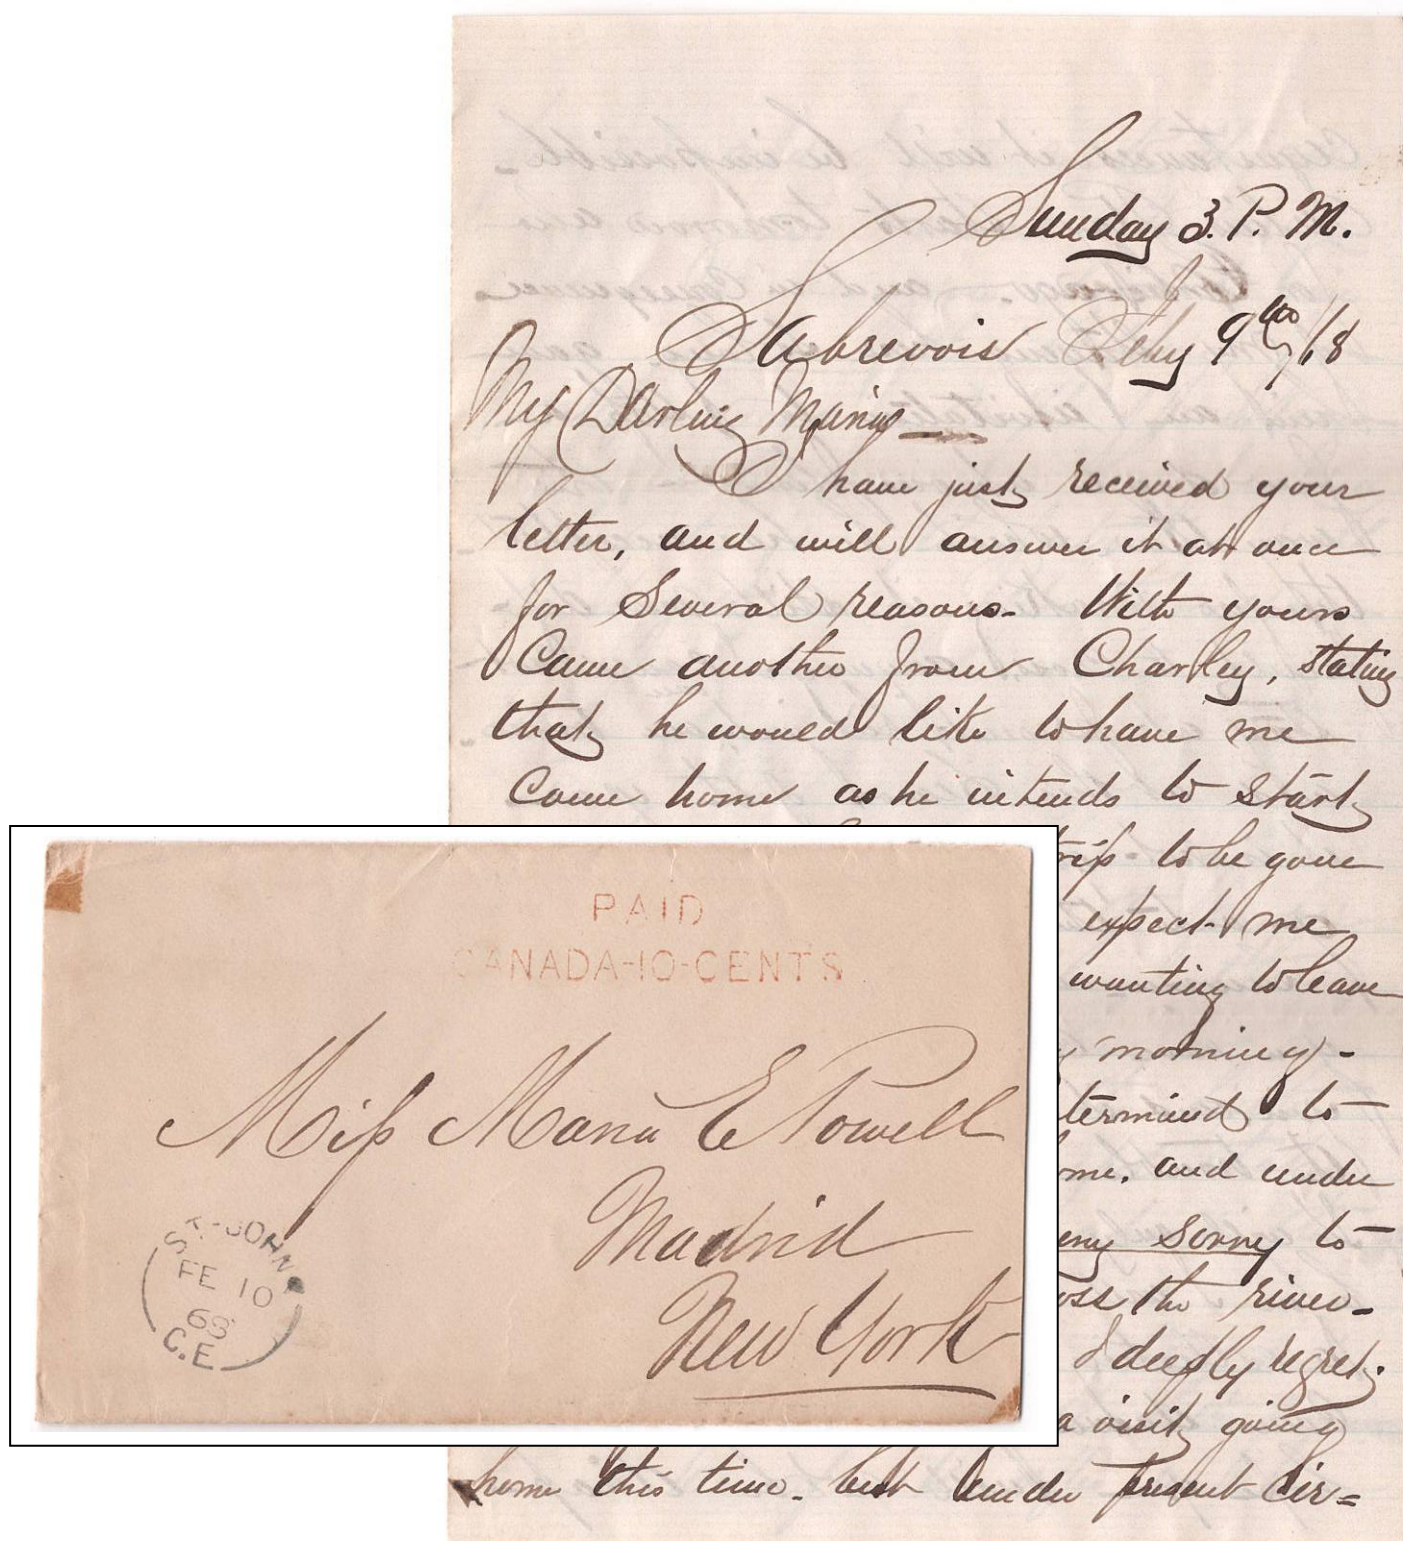 Sunday 3. P. M.
Sabrevois Feby 9th /68
My Darling Maria
I have just received your
letter, and will answer it at once
for Several reasons - With yours
Came another from Charley, stating
that he would like to have me
Come home as he intends to start
trip - to be gone
expect me
wanting to leave
morning -
to
and under
Sorry to
the river -
I deeply regret
a visit going
home this time - but under present cir=
PAID
CANADA-10-CENTS
Miss Maria E Powell
Madrid
New York
ST. JOHNS
FE 10
68
C.E